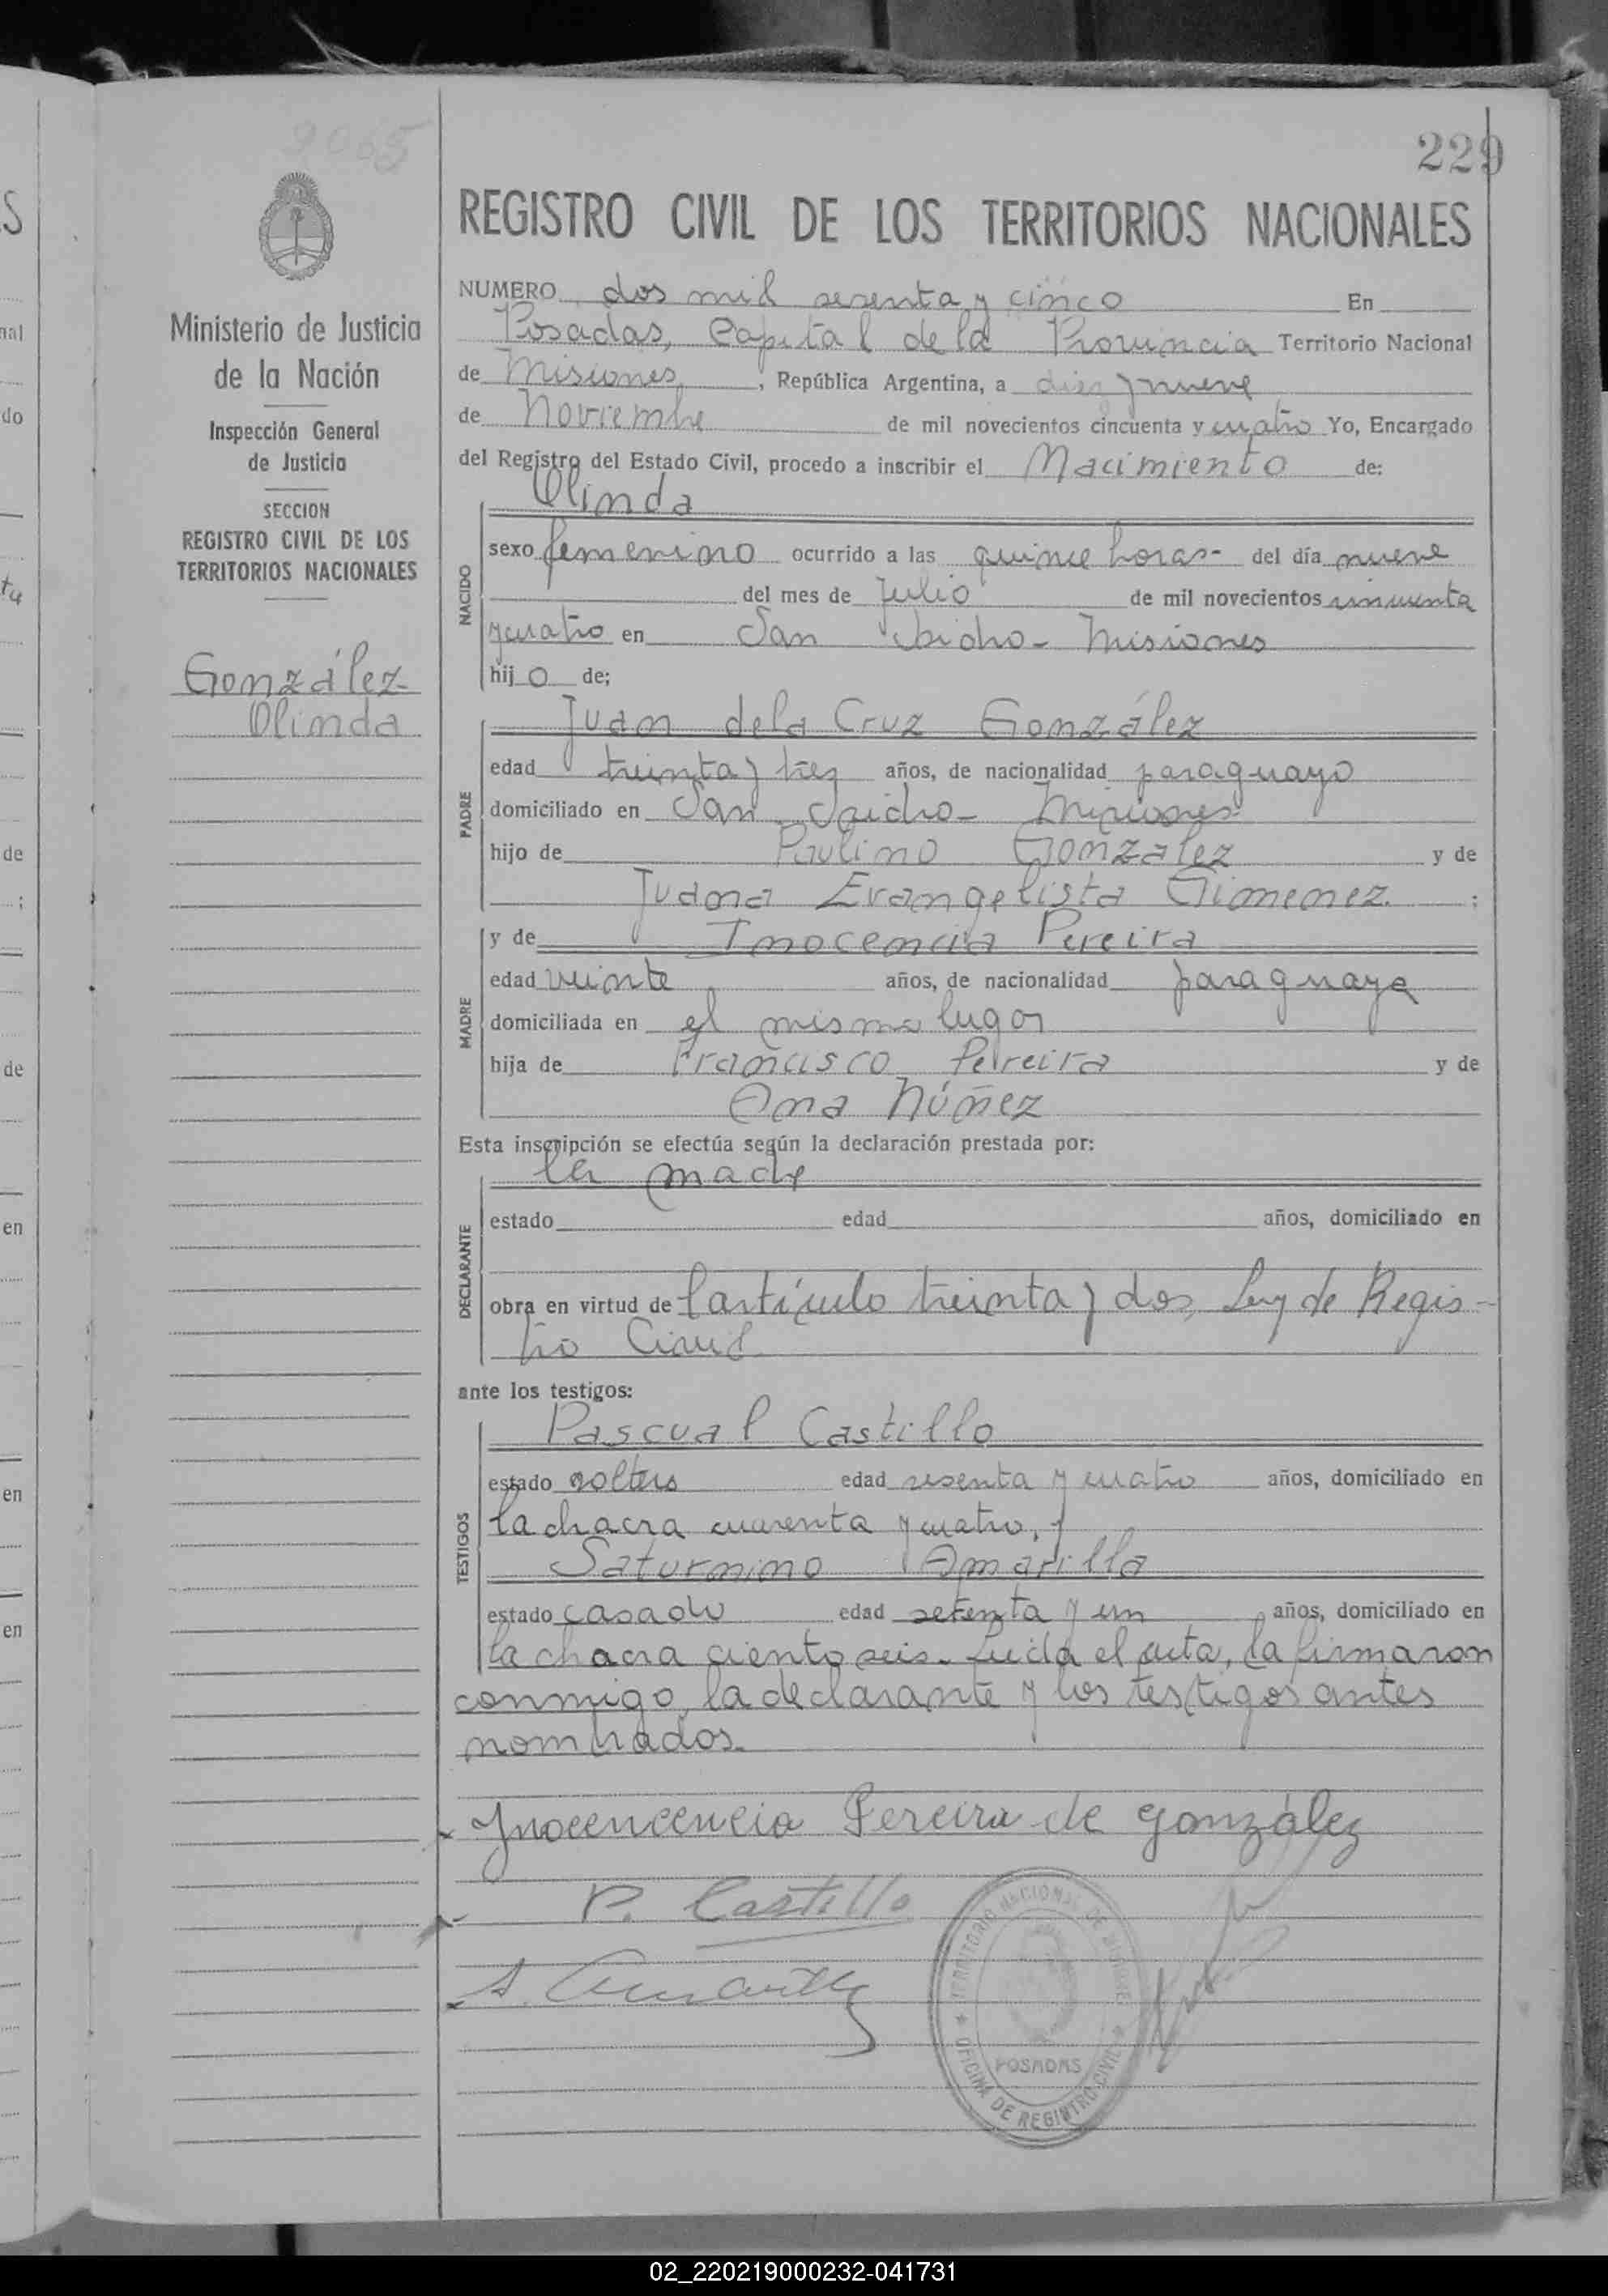 2065
229
REGISTRO CIVIL DE LOS TERRITORIOS NACIONALES
Ministerio de Justicia
de la Nación
Inspección General
de Justicia
SECCION
REGISTRO CIVIL DE LOS
TERRITORIOS NACIONALES
González
Olinda
NUMERO dos mil sesenta y cinco En
Posadas, Capital de la Provincia Territorio Nacional
de Misiones, República Argentina, a diez y nueve
de Noviembre de mil novecientos cincuenta y cuatro Yo, Encargado
del Registro del Estado Civil, procedo a inscribir el Nacimiento de:
NACIDO
Olinda
sexo femenino ocurrido a las quince horas- del día nueve
del mes de Julio de mil novecientos cincuenta
y cuatro en San Isidro- Misiones
hij o de;
PADRE
Juan de la Cruz González
edad treinta y tres años, de nacionalidad paraguayo
domiciliado en San Isidro- Misiones
hijo de Paulino González y de
Juana Evangelista Gimenez ;
MADRE
y de Inocencia Pereira
edad veinte años, de nacionalidad paraguaya
domiciliada en el mismo lugar
hija de Francisco Pereira y de
Ana Núñez
Esta inscripción se efectúa según la declaración prestada por:
DECLARANTE
la madre
estado edad años, domiciliado en
obra en virtud de l artículo treinta y dos, Ley de Regis-
tro Civil
ante los testigos:
TESTIGOS
Pascual Castillo
estado soltero edad sesenta y cuatro años, domiciliado en
la chacra cuarenta y cuatro, y
Saturnino Amarilla
estado casado edad setenta y un años, domiciliado en
la chacra ciento seis. Leida el acta, la firmaron
conmigo, la declarante y los testigos antes
nombrados.
Ynocencencia Pereira de González
P. Castillo
S. Amarilla
TERRITORIO NACIONAL DE MISIONES
POSADAS
OFICINA DE REGISTRO CIVIL
S
nal
do
ta
de
;
de
en
en
en
02_220219000232-041731